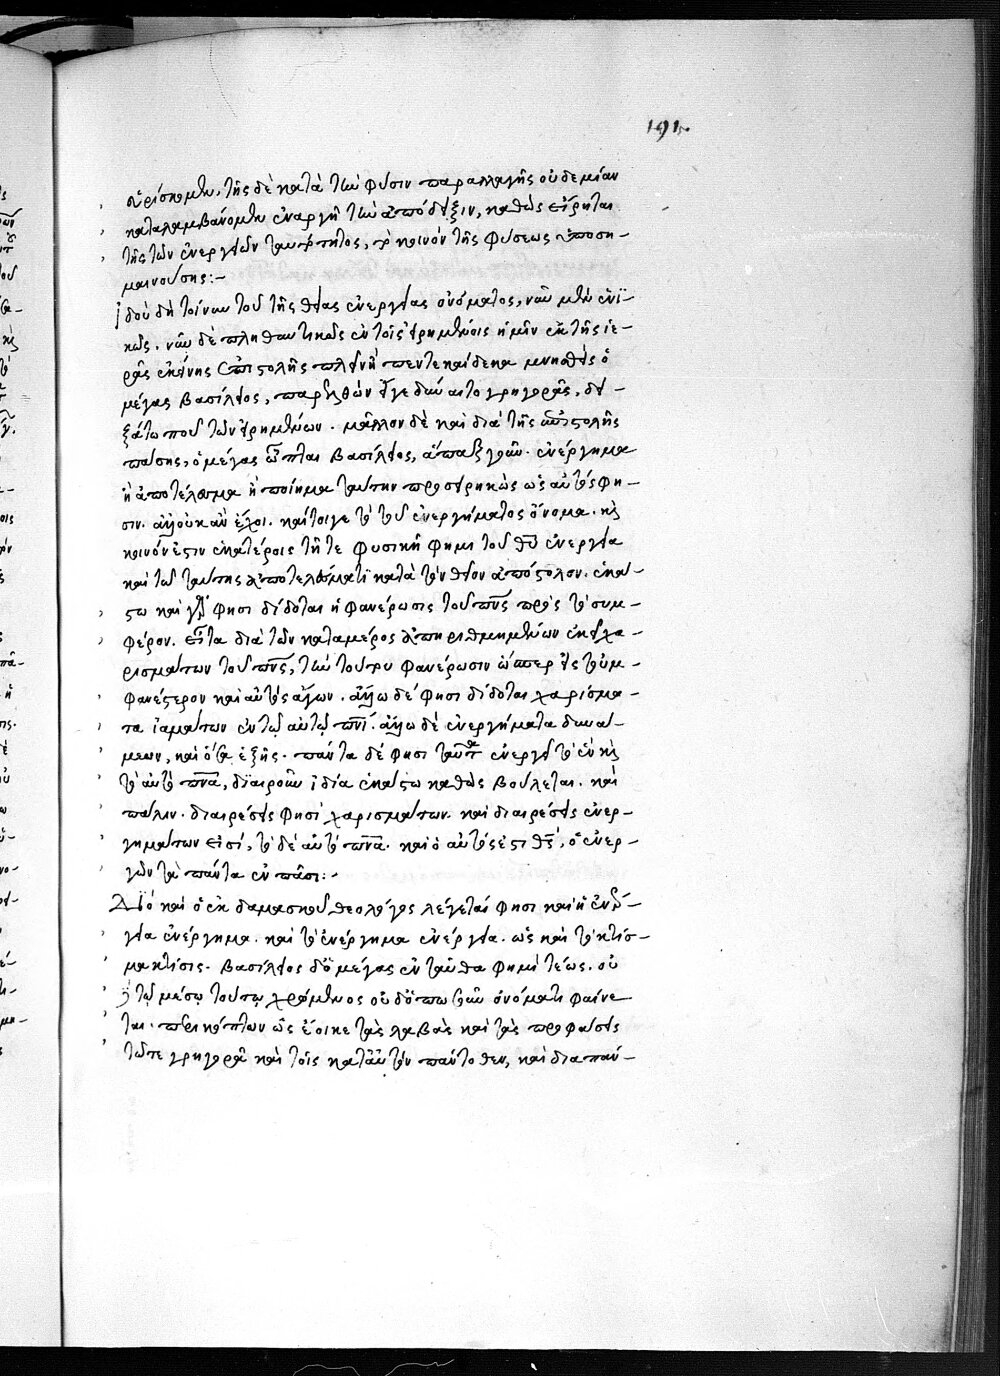 191
εὑρίσκομεν, τῆς δὲ κατὰ τὴν φύσιν παραλλαγῆς οὐδεμίαν
καταλαμβάνομεν ἐναργῆ τὴν ἀπόδειξιν, καθὼς εἴρηται
τῆς τῶν ἐνεργειῶν ταυτότητος, τὸ κοινὸν τῆς φύσεως ὑποση-
μαινούσης:-
ἰδοὺ δὴ τοίνυν τοῦ τῆς θείας ἐνεργείας ὀνόματος, νῦν μὲν ἑνι-
κῶς, νῦν δὲ πληθυντικῶς ἐν τοῖς εἰρημένοις ἡμῖν ἐκ τῆς ἱε-
ρᾶς ἐκείνης ἐπιστολῆς πλεῖν ἢ πεντεκαίδεκα μνησθεὶς ὁ
μέγας βασίλειος, παρ
μᾶλλον δὲ καὶ διὰ τῆς ἐπιστολῆς
πάσης, ὁ μέγας βασίλειος, ἅπαξ γοῦν ἐνέργημα
ἢ ἀποτέλεσμα ἢ ποίημα ταύτην προσειρηκὼς ὡς αὐτός φη-
σιν. ἀλλ' οὐκ ἂν ἔχοι. καίτοιγε τὸ τοῦ ἐνεργήματος ὄνομα. καὶ
κοινόν ἐστιν ἑκατέροις τῇ τε φυσικῇ φημι τοῦ θυ ἐνεργεία
καὶ τῷ ταύτης ἀποτελέσματι κατὰ τὸν θεῖον ἀπόστολον. ἑκά-
στω καὶ γάρ φησι δίδοται ἡ φανέρωσις τοῦ πνς πρὸς τὸ συμ-
φέρον. εἶτα διὰ τῶν καταμέρος ἀπηριθμημένων ἐκεῖ χα-
ρισμάτων τοῦ πνς, τὴν τούτου φανέρωσιν ὥσπερ εἰς τοὐμ-
φανέστερον καὶ αὐτὸς ἄγων. ἄλλω δέ φησι δίδοται χαρίσμα-
τα ἰαμάτων ἐν τῷ αὐτῷ πνι. ἄλλω δὲ ἐνεργήματα δυνά-
μεων, καὶ ὅσα ἑξῆς. πάντα δέ φησι ταῦτα ἐνεργεῖ τὸ ἓν καὶ
τὸ αὐτὸ πνα, διαιροῦν ἰδία ἑκάστω καθὼς βούλεται. καὶ
πάλιν. διαιρέσεις φησὶ χαρισμάτων. καὶ διαιρέσεις ἐνερ-
γημάτων εἰσί, τὸ δὲ αὐτὸ πνα. καὶ ὁ αὐτός ἐστι θς, ὁ ἐνερ-
γῶν τὰ πάντα ἐν πᾶσι:-
Διὸ καὶ ὁ ἐκ δαμασκοῦ θεολόγος λέγεταί φησι καὶ ἡ ἐνέρ-
γεια ἐνέργημα. καὶ τὸ ἐνέργημα ἐνέργεια. ὡς καὶ τὸ κτίσ-
μα κτίσις. βασίλειος δ' ὁ μέγας ἐνταῦθα φημὶ τέως. οὐ
τῷ μέσῳ τούτῳ χρώμενος οὐδόπωσοῦν ὀνόματι φαίνε
ται. περικόπτων ὡς ἔοικε τὰς λαβὰς καὶ τὰς προφάσεις
τῶτε γρηγορᾶ καὶ τοῖς κατ' αὐτὸν πάντοθεν, καὶ διὰ παν-